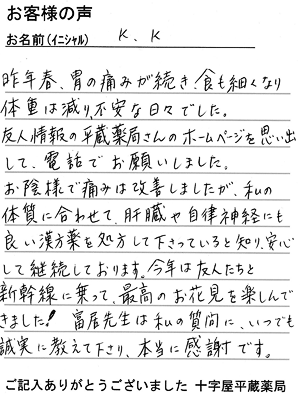 お客様の声
お名前(ｲﾆｼｬﾙ) K、K
昨年春、胃の痛みが続き、食も細くなり
体重は減り、不安な日々でした。
友人情報の平蔵薬局さんのホームページを思い出
して、電話でお願いしました。
お陰様で痛みは改善しましたが、私の
体質に合わせて、肝臓や自律神経にも
良い漢方薬を処方して下さっていると知り、安心
して継続しております。今年は友人たちと
新幹線に乗って、最高のお花見を楽しんで
きました! 富居先生は私の質問に、いつでも
誠実に教えて下さり、本当に感謝です。
ご記入ありがとうございました 十字屋平蔵薬局